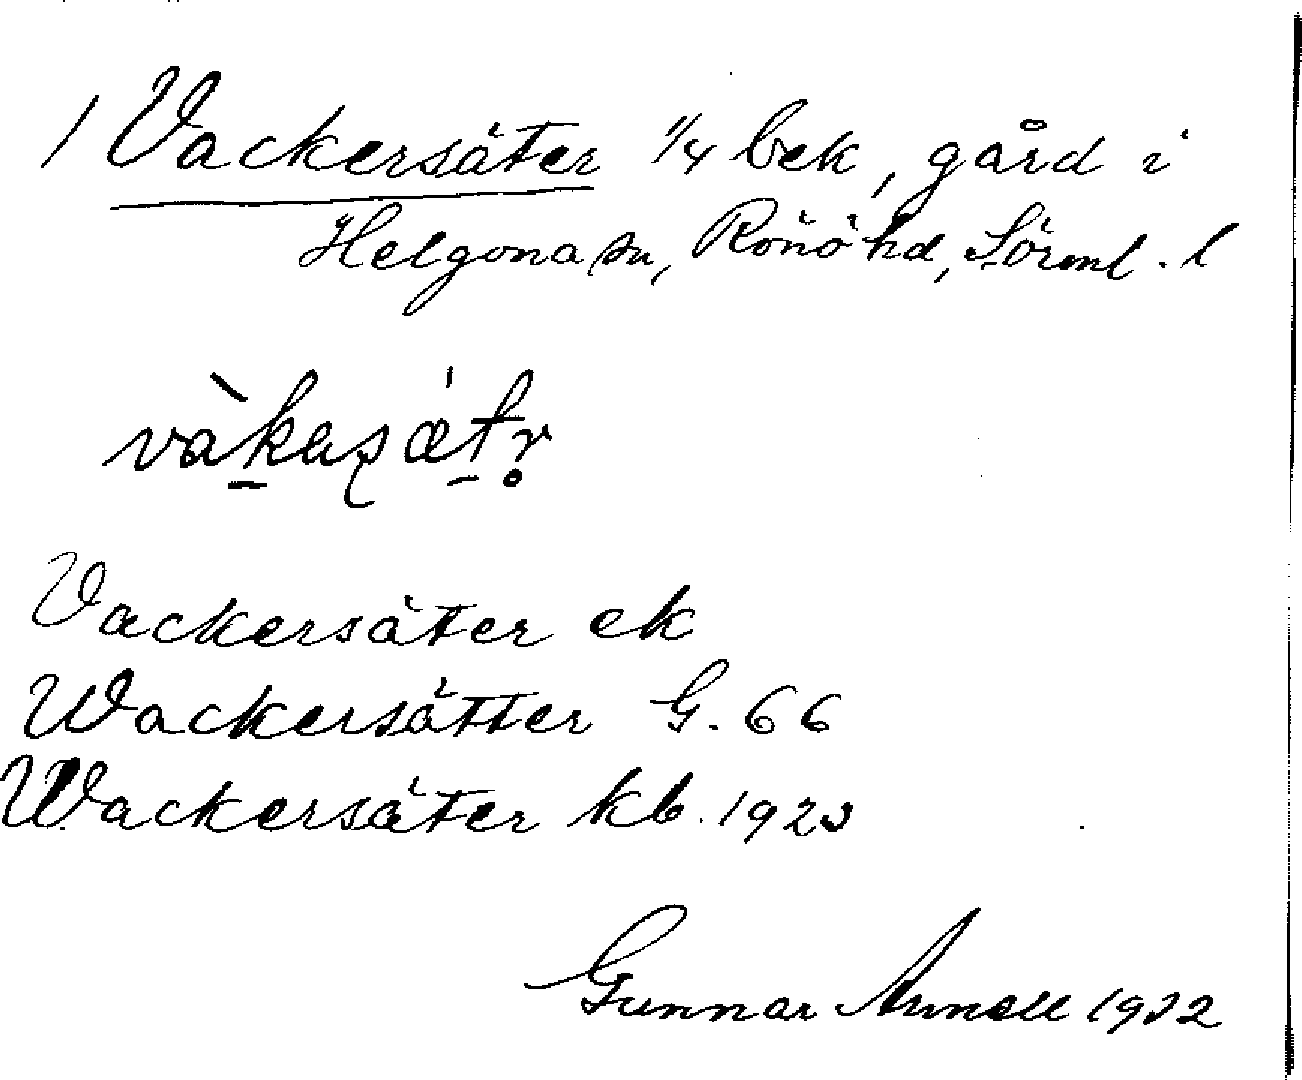 / Vackersäter 1/4 bek, gård i
Helgona sn, Rönö hd, Sörml. l
vàkasǽtr̥
Vackersäter ek
Wackersätter G. 66
Wackersäter kb. 1923
Gunnar 1932